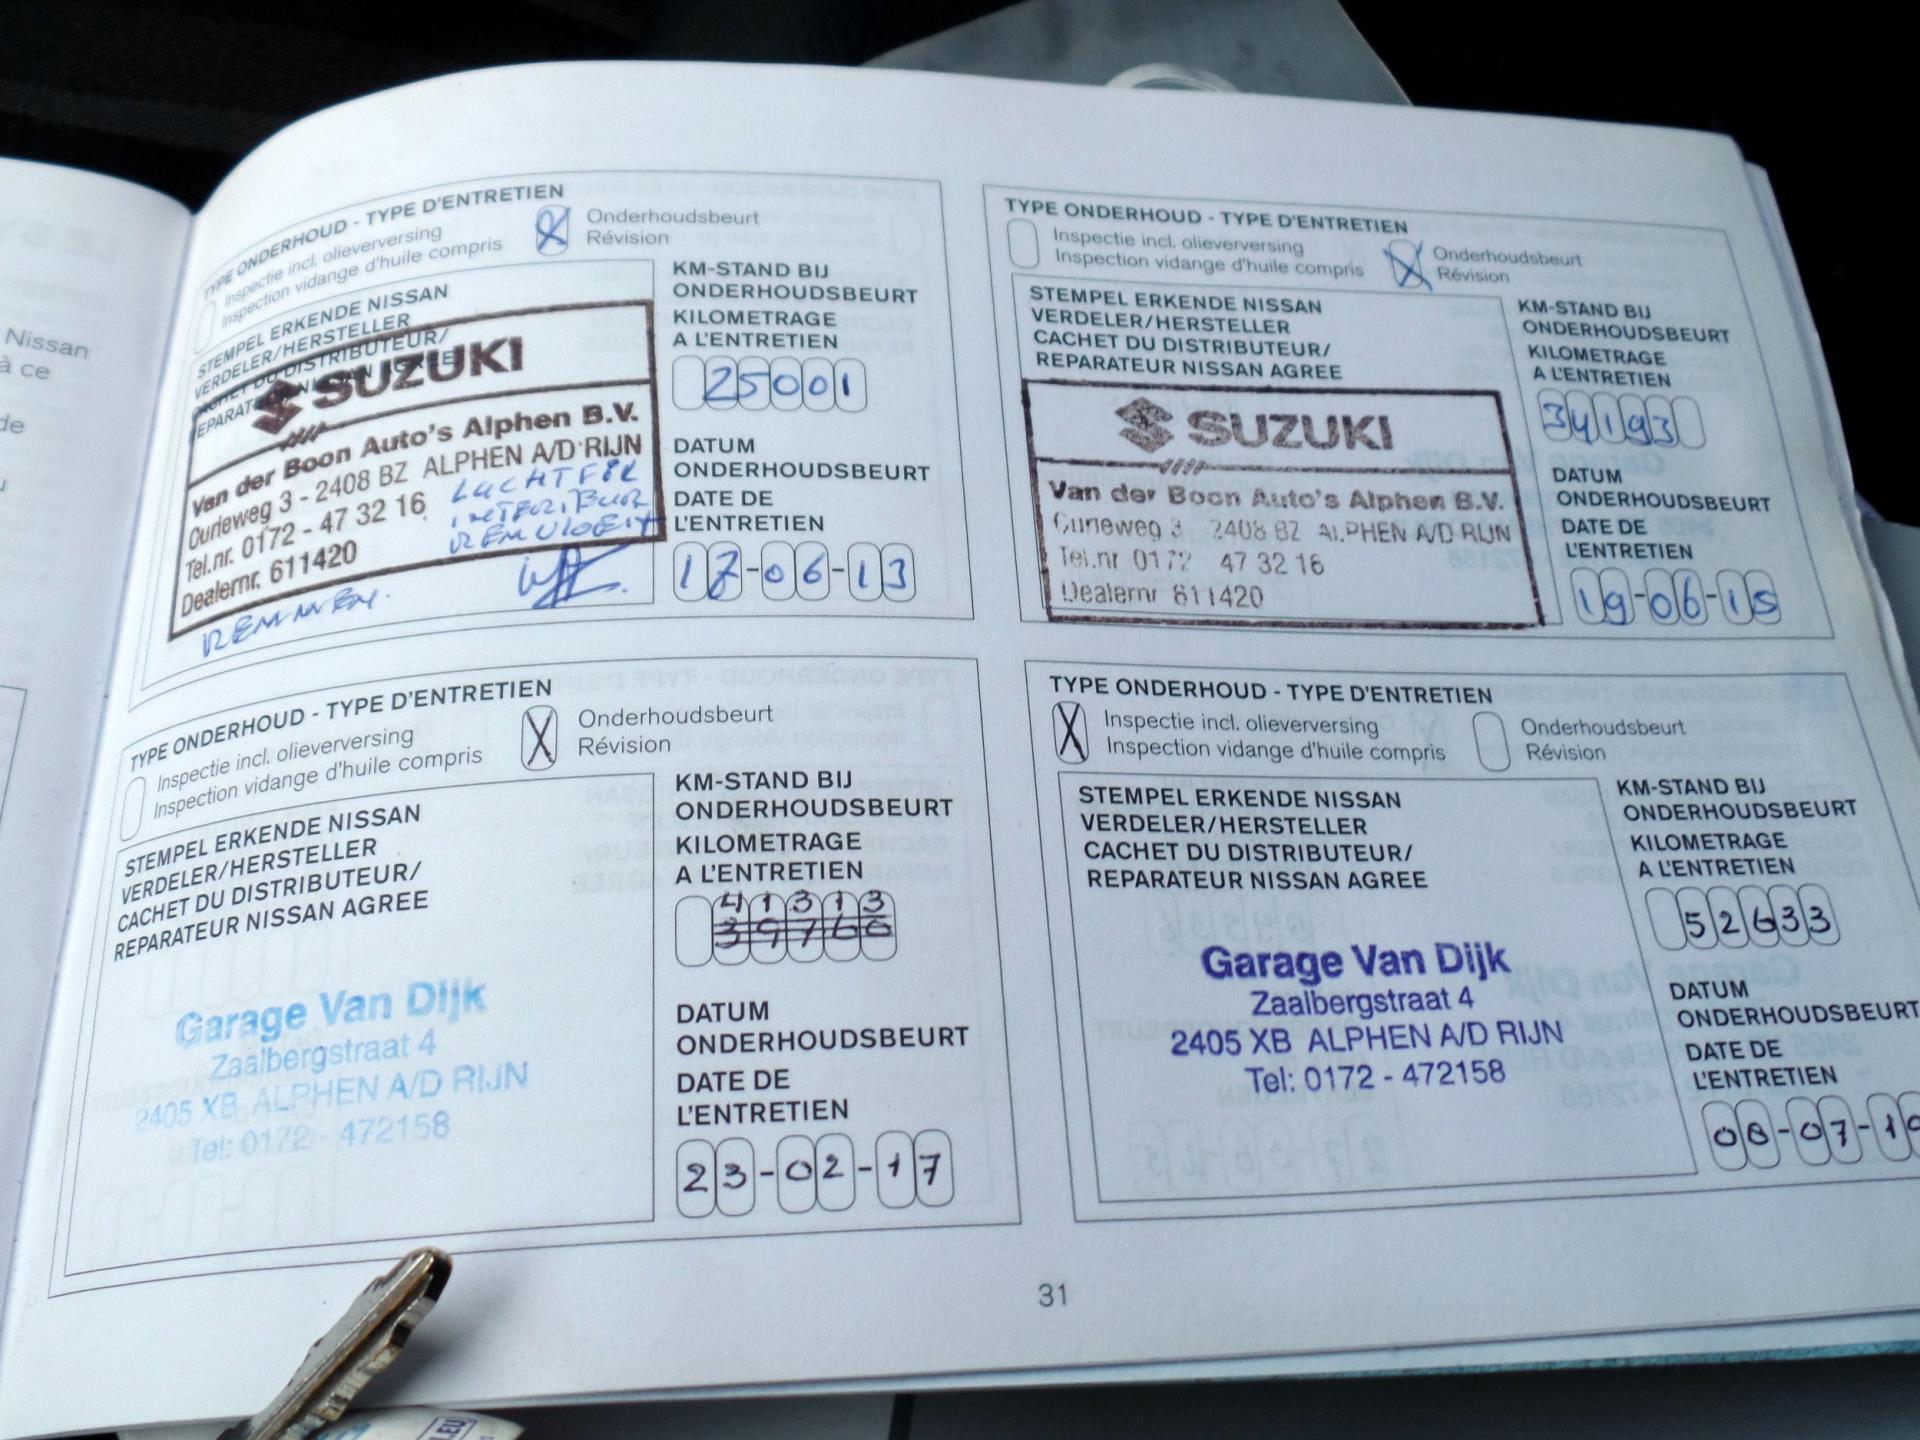 Nissan
à ce
de
TYPE ONDERHOUD - TYPE D'ENTRETIEN
Inspectie incl. olieverversing
Inspection vidange d'huile compris
Onderhoudsbeurt
Révision
STEMPEL ERKENDE NISSAN
VERDELER/HERSTELLER
CACHET DU DISTRIBUTEUR/
SUZUKI
Van der Boon Auto's Alphen B.V.
Curieweg 3 - 2408 BZ ALPHEN A/D RIJN
Tel.nr. 0172 - 47 32 16
Dealernr. 611420
LUCHTFIL
INTERIEUR
REMVLOEIT
REMMEN.
KM-STAND BIJ
ONDERHOUDSBEURT
KILOMETRAGE
A L'ENTRETIEN
25001
DATUM
ONDERHOUDSBEURT
DATE DE
L'ENTRETIEN
17-06-13
TYPE ONDERHOUD - TYPE D'ENTRETIEN
Inspectie incl. olieverversing
Inspection vidange d'huile compris
Onderhoudsbeurt
Révision
STEMPEL ERKENDE NISSAN
VERDELER/HERSTELLER
CACHET DU DISTRIBUTEUR/
REPARATEUR NISSAN AGREE
SUZUKI
Van der Boon Auto's Alphen B.V.
Curieweg 3 2408 BZ ALPHEN A/D RIJN
Tel.nr 0172 47 32 16
Dealernr 611420
KM-STAND BIJ
ONDERHOUDSBEURT
KILOMETRAGE
A L'ENTRETIEN
34193
DATUM
ONDERHOUDSBEURT
DATE DE
L'ENTRETIEN
19-06-15
TYPE ONDERHOUD - TYPE D'ENTRETIEN
Inspectie incl. olieverversing
Inspection vidange d'huile compris
Onderhoudsbeurt
Révision
STEMPEL ERKENDE NISSAN
VERDELER/HERSTELLER
CACHET DU DISTRIBUTEUR/
REPARATEUR NISSAN AGREE
Garage Van Dijk
Zaalbergstraat 4
2405 XB ALPHEN A/D RIJN
Tel: 0172 - 472158
KM-STAND BIJ
ONDERHOUDSBEURT
KILOMETRAGE
A L'ENTRETIEN
41313
39766
DATUM
ONDERHOUDSBEURT
DATE DE
L'ENTRETIEN
23-02-17
TYPE ONDERHOUD - TYPE D'ENTRETIEN
Inspectie incl. olieverversing
Inspection vidange d'huile compris
Onderhoudsbeurt
Révision
STEMPEL ERKENDE NISSAN
VERDELER/HERSTELLER
CACHET DU DISTRIBUTEUR/
REPARATEUR NISSAN AGREE
Garage Van Dijk
Zaalbergstraat 4
2405 XB ALPHEN A/D RIJN
Tel: 0172 - 472158
KM-STAND BIJ
ONDERHOUDSBEURT
KILOMETRAGE
A L'ENTRETIEN
52633
DATUM
ONDERHOUDSBEURT
DATE DE
L'ENTRETIEN
08-07-19
31